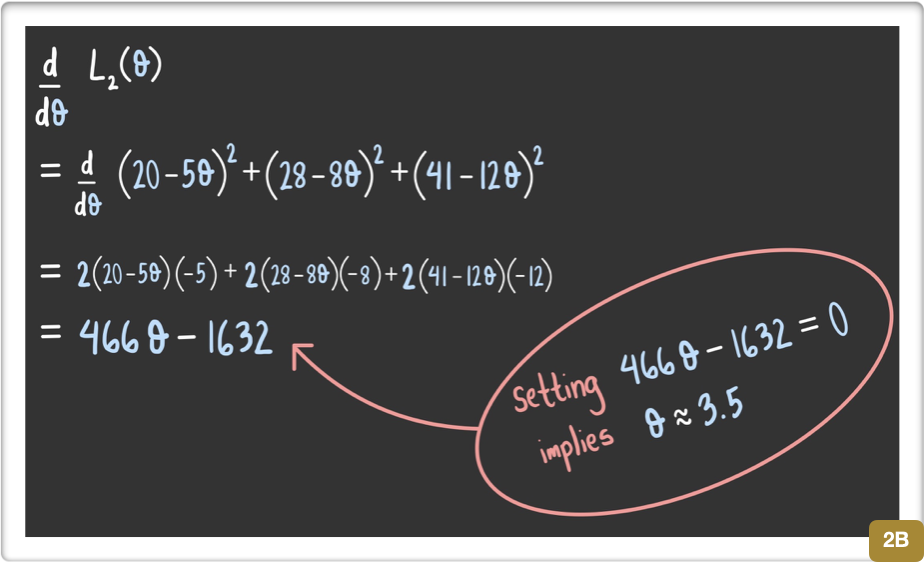 d
dθ L₂(θ)
= d
dθ (20-5θ)² + (28-8θ)² + (41-12θ)²
= 2(20-5θ)(-5) + 2(28-8θ)(-8) + 2(41-12θ)(-12)
= 466θ - 1632
Setting 466θ - 1632 = 0
implies θ ≈ 3.5
2B